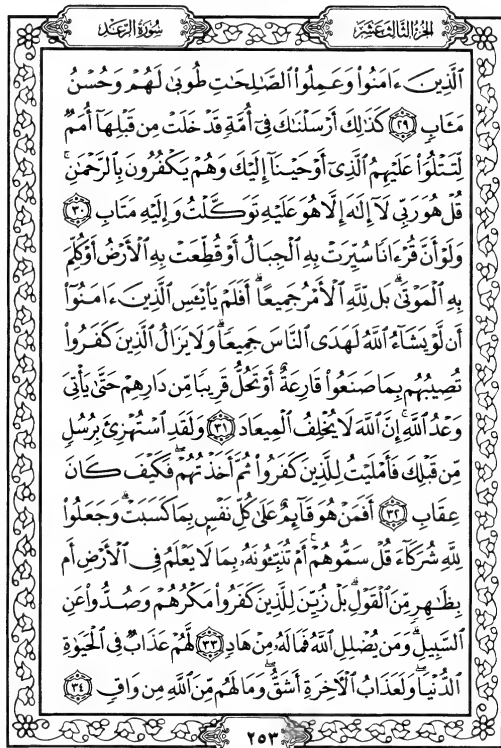 الجزء الثالث عشر
سورة الرعد
ٱلَّذِينَ ءَامَنُواْ وَعَمِلُواْ ٱلصَّٰلِحَٰتِ طُوبَىٰ لَهُمۡ وَحُسۡنُ
مَـَٔابٖ ٢٩ كَذَٰلِكَ أَرۡسَلۡنَٰكَ فِيٓ أُمَّةٖ قَدۡ خَلَتۡ مِن قَبۡلِهَآ أُمَمٞ
لِّتَتۡلُوَاْ عَلَيۡهِمُ ٱلَّذِيٓ أَوۡحَيۡنَآ إِلَيۡكَ وَهُمۡ يَكۡفُرُونَ بِٱلرَّحۡمَٰنِۚ
قُلۡ هُوَ رَبِّي لَآ إِلَٰهَ إِلَّا هُوَ عَلَيۡهِ تَوَكَّلۡتُ وَإِلَيۡهِ مَتَابِ ٣٠
وَلَوۡ أَنَّ قُرۡءَانٗا سُيِّرَتۡ بِهِ ٱلۡجِبَالُ أَوۡ قُطِّعَتۡ بِهِ ٱلۡأَرۡضُ أَوۡ كُلِّمَ
بِهِ ٱلۡمَوۡتَىٰۗ بَل لِّلَّهِ ٱلۡأَمۡرُ جَمِيعًاۗ أَفَلَمۡ يَاْيۡـَٔسِ ٱلَّذِينَ ءَامَنُوٓاْ
أَن لَّوۡ يَشَآءُ ٱللَّهُ لَهَدَى ٱلنَّاسَ جَمِيعٗاۗ وَلَا يَزَالُ ٱلَّذِينَ كَفَرُواْ
تُصِيبُهُم بِمَا صَنَعُواْ قَارِعَةٌ أَوۡ تَحُلُّ قَرِيبٗا مِّن دَارِهِمۡ حَتَّىٰ يَأۡتِيَ
وَعۡدُ ٱللَّهِۚ إِنَّ ٱللَّهَ لَا يُخۡلِفُ ٱلۡمِيعَادَ ٣١ وَلَقَدِ ٱسۡتُهۡزِئَ بِرُسُلٖ
مِّن قَبۡلِكَ فَأَمۡلَيۡتُ لِلَّذِينَ كَفَرُواْ ثُمَّ أَخَذۡتُهُمۡۖ فَكَيۡفَ كَانَ
عِقَابِ ٣٢ أَفَمَنۡ هُوَ قَآئِمٌ عَلَىٰ كُلِّ نَفۡسِۭ بِمَا كَسَبَتۡۗ وَجَعَلُواْ
لِلَّهِ شُرَكَآءَ قُلۡ سَمُّوهُمۡۚ أَمۡ تُنَبِّـُٔونَهُۥ بِمَا لَا يَعۡلَمُ فِي ٱلۡأَرۡضِ أَم
بِظَٰهِرٖ مِّنَ ٱلۡقَوۡلِۗ بَلۡ زُيِّنَ لِلَّذِينَ كَفَرُواْ مَكۡرُهُمۡ وَصُدُّواْ عَنِ
ٱلسَّبِيلِۗ وَمَن يُضۡلِلِ ٱللَّهُ فَمَا لَهُۥ مِنۡ هَادٖ ٣٣ لَّهُمۡ عَذَابٞ فِي ٱلۡحَيَوٰةِ
ٱلدُّنۡيَاۖ وَلَعَذَابُ ٱلۡأٓخِرَةِ أَشَقُّۖ وَمَا لَهُم مِّنَ ٱللَّهِ مِن وَاقٖ ٣٤
٢٥٣